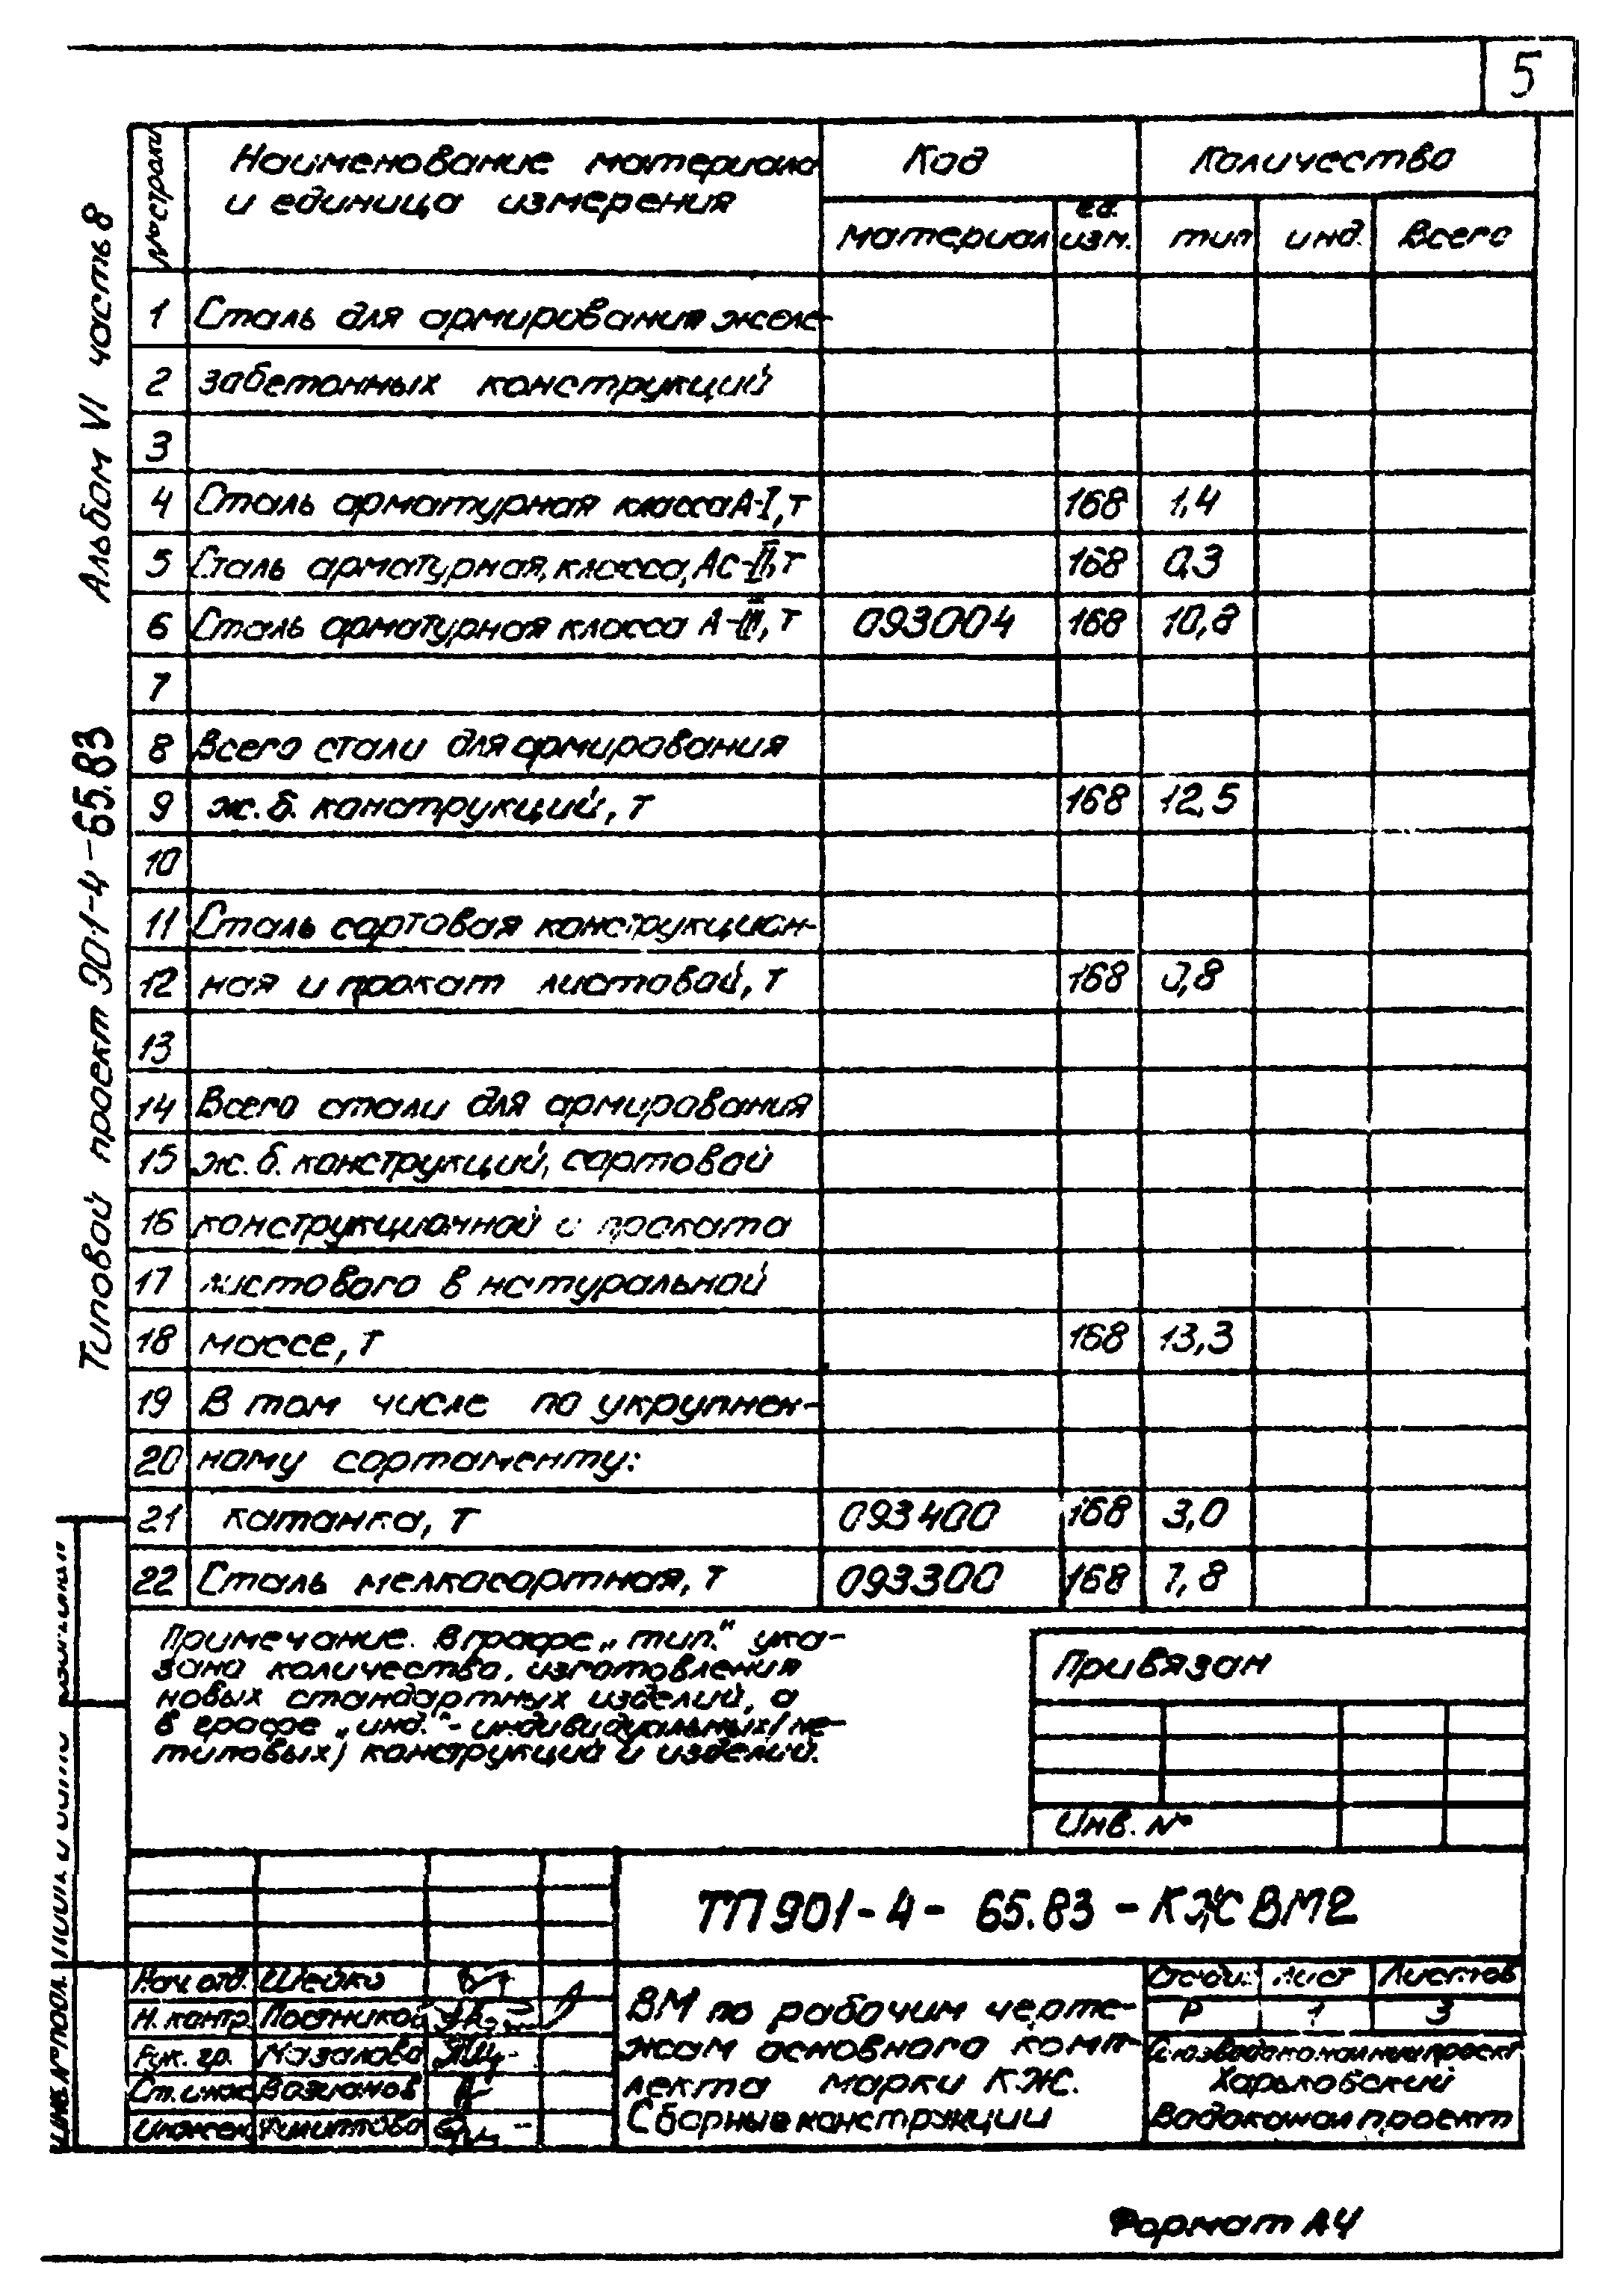 5
Альбом VI часть 8
Типовой проект 901-4-65.83
№ строки
Наименование материала
и единица измерения
Код
Количество
материал
ед.
изм.
тип
инд.
всего
1 Сталь для армирования желе-
2 забетонных конструкций
3
4 Сталь арматурная класса А-I, т 168 1,4
5 Сталь арматурная, класса, Ас-II, т 168 0,3
6 Сталь арматурная класса А-III, т 093004 168 10,8
7
8 Всего стали для армирования
9 ж.б. конструкций, т 168 12,5
10
11 Сталь сортовая конструкцион-
12 ная и прокат листовой, т 168 0,8
13
14 Всего стали для армирования
15 ж.б. конструкций, сортовой
16 конструкционной и проката
17 листового в натуральной
18 массе, т 168 13,3
19 В том числе по укрупнен-
20 ному сортаменту:
21 катанка, т 093400 168 3,0
22 Сталь мелкосортная, т 093300 168 7,8
Примечание. В графе „тип.“ ука-
зано количество, изготовления
новых стандартных изделий, а
в графе „инд.“ - индивидуальных/не-
типовых) конструкций и изделий.
Привязан
Инв. №
ТП 901-4-65.83-КЖ ВМ2
Нач. отд. Шейко
Н. контр.
Рук. гр.
Ст. инж.
ВМ по рабочим черте-
жам основного комп-
лекта марки КЖ.
Сборные конструкции
Стади. Лист Листов
Р 1 3
Союзводоканалниипроект
Харьковский
Водоканалпроект
Инв. № подл.
Формат А4